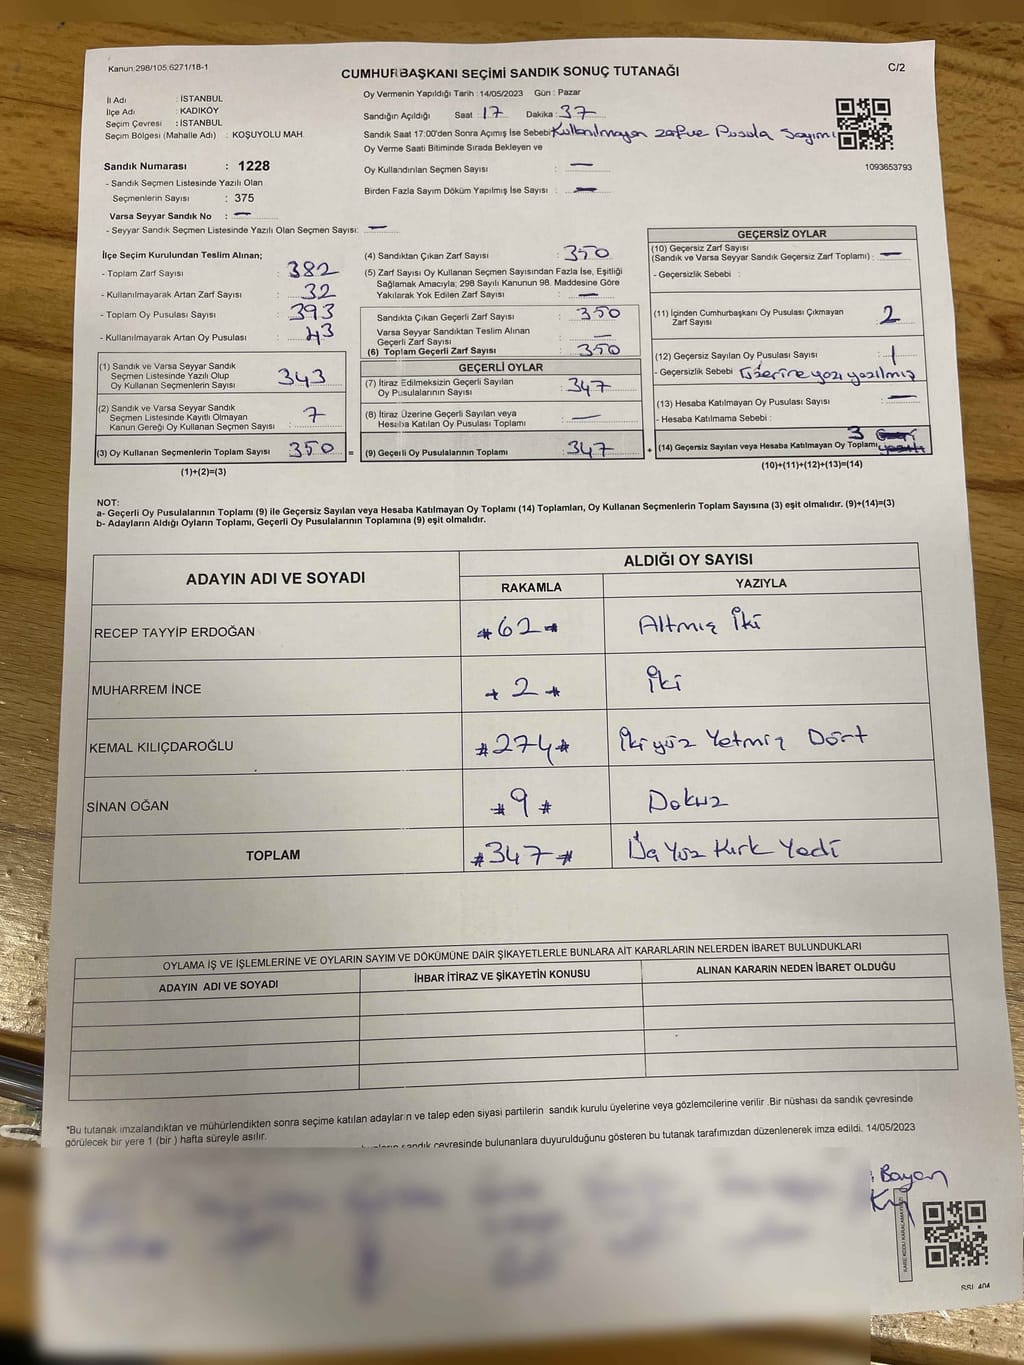 Kanun:298/105;6271/18-1
CUMHURBAŞKANI SEÇİMİ SANDIK SONUÇ TUTANAĞI
C/2
İl Adı : İSTANBUL
İlçe Adı : KADIKÖY
Seçim Çevresi : İSTANBUL
Seçim Bölgesi (Mahalle Adı) : KOŞUYOLU MAH.
Oy Vermenin Yapıldığı Tarih : 14/05/2023 Gün : Pazar
Sandığın Açıldığı Saat : 17 Dakika : 37
Sandık Saat 17:00'den Sonra Açımış İse Sebebi Kullanılmayan zarf ve Pusula Sayımı
Oy Verme Saati Bitiminde Sırada Bekleyen ve
Oy Kullandırılan Seçmen Sayısı : —
Birden Fazla Sayım Döküm Yapılmış İse Sayısı : —
1093653793
Sandık Numarası : 1228
- Sandık Seçmen Listesinde Yazılı Olan
Seçmenlerin Sayısı : 375
Varsa Seyyar Sandık No : —
- Seyyar Sandık Seçmen Listesinde Yazılı Olan Seçmen Sayısı: —
İlçe Seçim Kurulundan Teslim Alınan;
- Toplam Zarf Sayısı : 382
- Kullanılmayarak Artan Zarf Sayısı : 32
- Toplam Oy Pusulası Sayısı : 393
- Kullanılmayarak Artan Oy Pusulası : 43
(1) Sandık ve Varsa Seyyar Sandık
Seçmen Listesinde Yazılı Olup
Oy Kullanan Seçmenlerin Sayısı : 343
(2) Sandık ve Varsa Seyyar Sandık
Seçmen Listesinde Kayıtlı Olmayan
Kanun Gereği Oy Kullanan Seçmen Sayısı : 7
(3) Oy Kullanan Seçmenlerin Toplam Sayısı : 350 =
(1)+(2)=(3)
(4) Sandıktan Çıkan Zarf Sayısı : 350
(5) Zarf Sayısı Oy Kullanan Seçmen Sayısından Fazla İse, Eşitliği
Sağlamak Amacıyla; 298 Sayılı Kanunun 98. Maddesine Göre
Yakılarak Yok Edilen Zarf Sayısı : —
Sandıkta Çıkan Geçerli Zarf Sayısı : 350
Varsa Seyyar Sandıktan Teslim Alınan
Geçerli Zarf Sayısı : —
(6) Toplam Geçerli Zarf Sayısı : 350
GEÇERLİ OYLAR
(7) İtiraz Edilmeksizin Geçerli Sayılan
Oy Pusulalarının Sayısı : 347
(8) İtiraz Üzerine Geçerli Sayılan veya
Hesaba Katılan Oy Pusulası Toplamı : —
(9) Geçerli Oy Pusulalarının Toplamı : 347 +
GEÇERSİZ OYLAR
(10) Geçersiz Zarf Sayısı
(Sandık ve Varsa Seyyar Sandık Geçersiz Zarf Toplamı) : —
- Geçersizlik Sebebi :
(11) İçinden Cumhurbaşkanı Oy Pusulası Çıkmayan
Zarf Sayısı : 2
(12) Geçersiz Sayılan Oy Pusulası Sayısı : 1
- Geçersizlik Sebebi : üzerine yazı yazılmış
(13) Hesaba Katılmayan Oy Pusulası Sayısı : —
- Hesaba Katılmama Sebebi :
(14) Geçersiz Sayılan veya Hesaba Katılmayan Oy Toplamı 3
(10)+(11)+(12)+(13)=(14)
NOT:
a- Geçerli Oy Pusulalarının Toplamı (9) ile Geçersiz Sayılan veya Hesaba Katılmayan Oy Toplamı (14) Toplamları, Oy Kullanan Seçmenlerin Toplam Sayısına (3) eşit olmalıdır. (9)+(14)=(3)
b- Adayların Aldığı Oyların Toplamı, Geçerli Oy Pusulalarının Toplamına (9) eşit olmalıdır.
ADAYIN ADI VE SOYADI
ALDIĞI OY SAYISI
RAKAMLA YAZIYLA
RECEP TAYYİP ERDOĞAN #62# Altmış İki
MUHARREM İNCE #2# İki
KEMAL KILIÇDAROĞLU #274# İkiyüz Yetmiş Dört
SİNAN OĞAN #9# Dokuz
TOPLAM #347# Üç Yüz Kırk Yedi
OYLAMA İŞ VE İŞLEMLERİNE VE OYLARIN SAYIM VE DÖKÜMÜNE DAİR ŞİKAYETLERLE BUNLARA AİT KARARLARIN NELERDEN İBARET BULUNDUKLARI
ADAYIN ADI VE SOYADI İHBAR İTİRAZ VE ŞİKAYETİN KONUSU ALINAN KARARIN NEDEN İBARET OLDUĞU
*Bu tutanak imzalandıktan ve mühürlendikten sonra seçime katılan adayların ve talep eden siyasi partilerin sandık kurulu üyelerine veya gözlemcilerine verilir .Bir nüshası da sandık çevresinde
görülecek bir yere 1 (bir ) hafta süreyle asılır.
sandık çevresinde bulunanlara duyurulduğunu gösteren bu tutanak tarafımızdan düzenlenerek imza edildi. 14/05/2023
Bayan